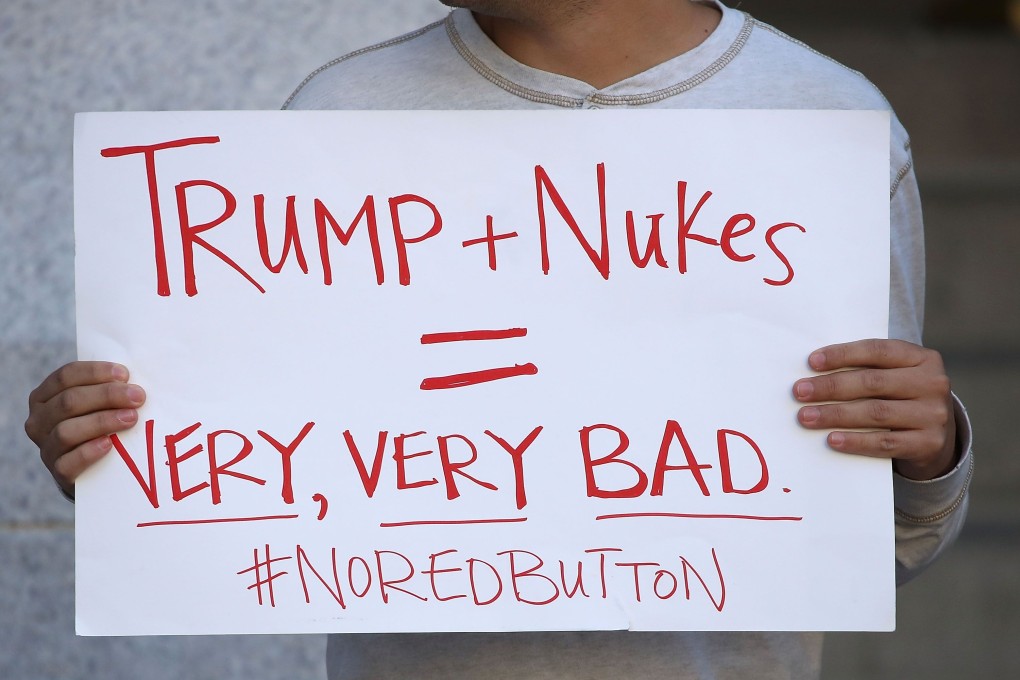 TRUMP + Nukes
=
VERY, VERY BAD.
#NOREDBUTTON